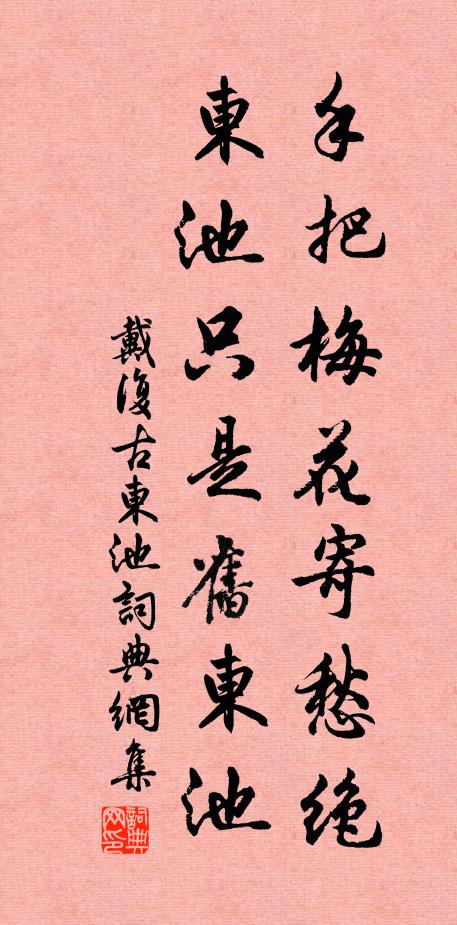 手把梅花寄愁绝
東池只是舊東池
戴復古東池詞典網集
詞典网印